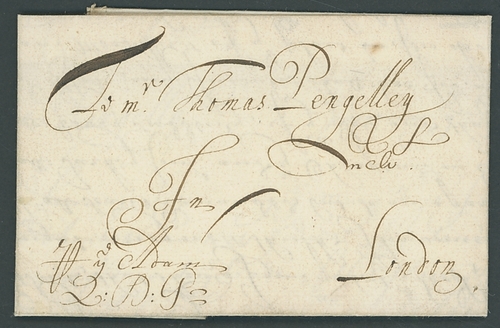 To mr. Thomas Pengelley
Merch.
In
London
ye Adam
Q: D: G: